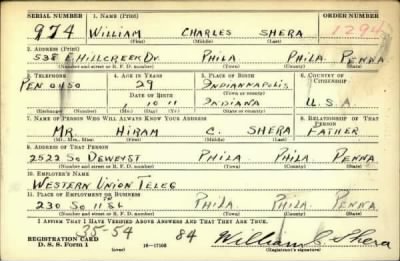 SERIAL NUMBER 1. NAME (Print) ORDER NUMBER
974 WILLIAM CHARLES SHERA 1294
(First) (Middle) (Last)
2. ADDRESS (Print)
538 E HILLCREEK DV PHILA PHILA PENNA
(Number and street or R. F. D. number) (Town) (County) (State)
3. TELEPHONE 4. AGE IN YEARS 5. PLACE OF BIRTH 6. COUNTRY OF CITIZENSHIP
PEN 0450 29 INDIANAPOLIS
DATE OF BIRTH (Town or county)
10 11 INDIANA U.S.A.
(Exchange) (No.) (Mo.) (Day) (Yr.) (State or country)
7. NAME OF PERSON WHO WILL ALWAYS KNOW YOUR ADDRESS 8. RELATIONSHIP OF THAT PERSON
MR. HIRAM C. SHERA FATHER
(Mr., Mrs., Miss) (First) (Middle) (Last)
9. ADDRESS OF THAT PERSON
2522 SO PHILA PHILA PENNA
(Number and street or R. F. D. number) (Town) (County) (State)
10. EMPLOYER'S NAME
WESTERN UNION TELEG
11. PLACE OF EMPLOYMENT OR BUSINESS
230 SO 11 ST PHILA PHILA. PENNA
(Number and street or R. F. D. number) (Town) (County) (State)
I AFFIRM THAT I HAVE VERIFIED ABOVE ANSWERS AND THAT THEY ARE TRUE.
35-54 84 William C Shera
REGISTRATION CARD
D. S. S. Form 1 (over) 16—17105 (Registrant's signature)